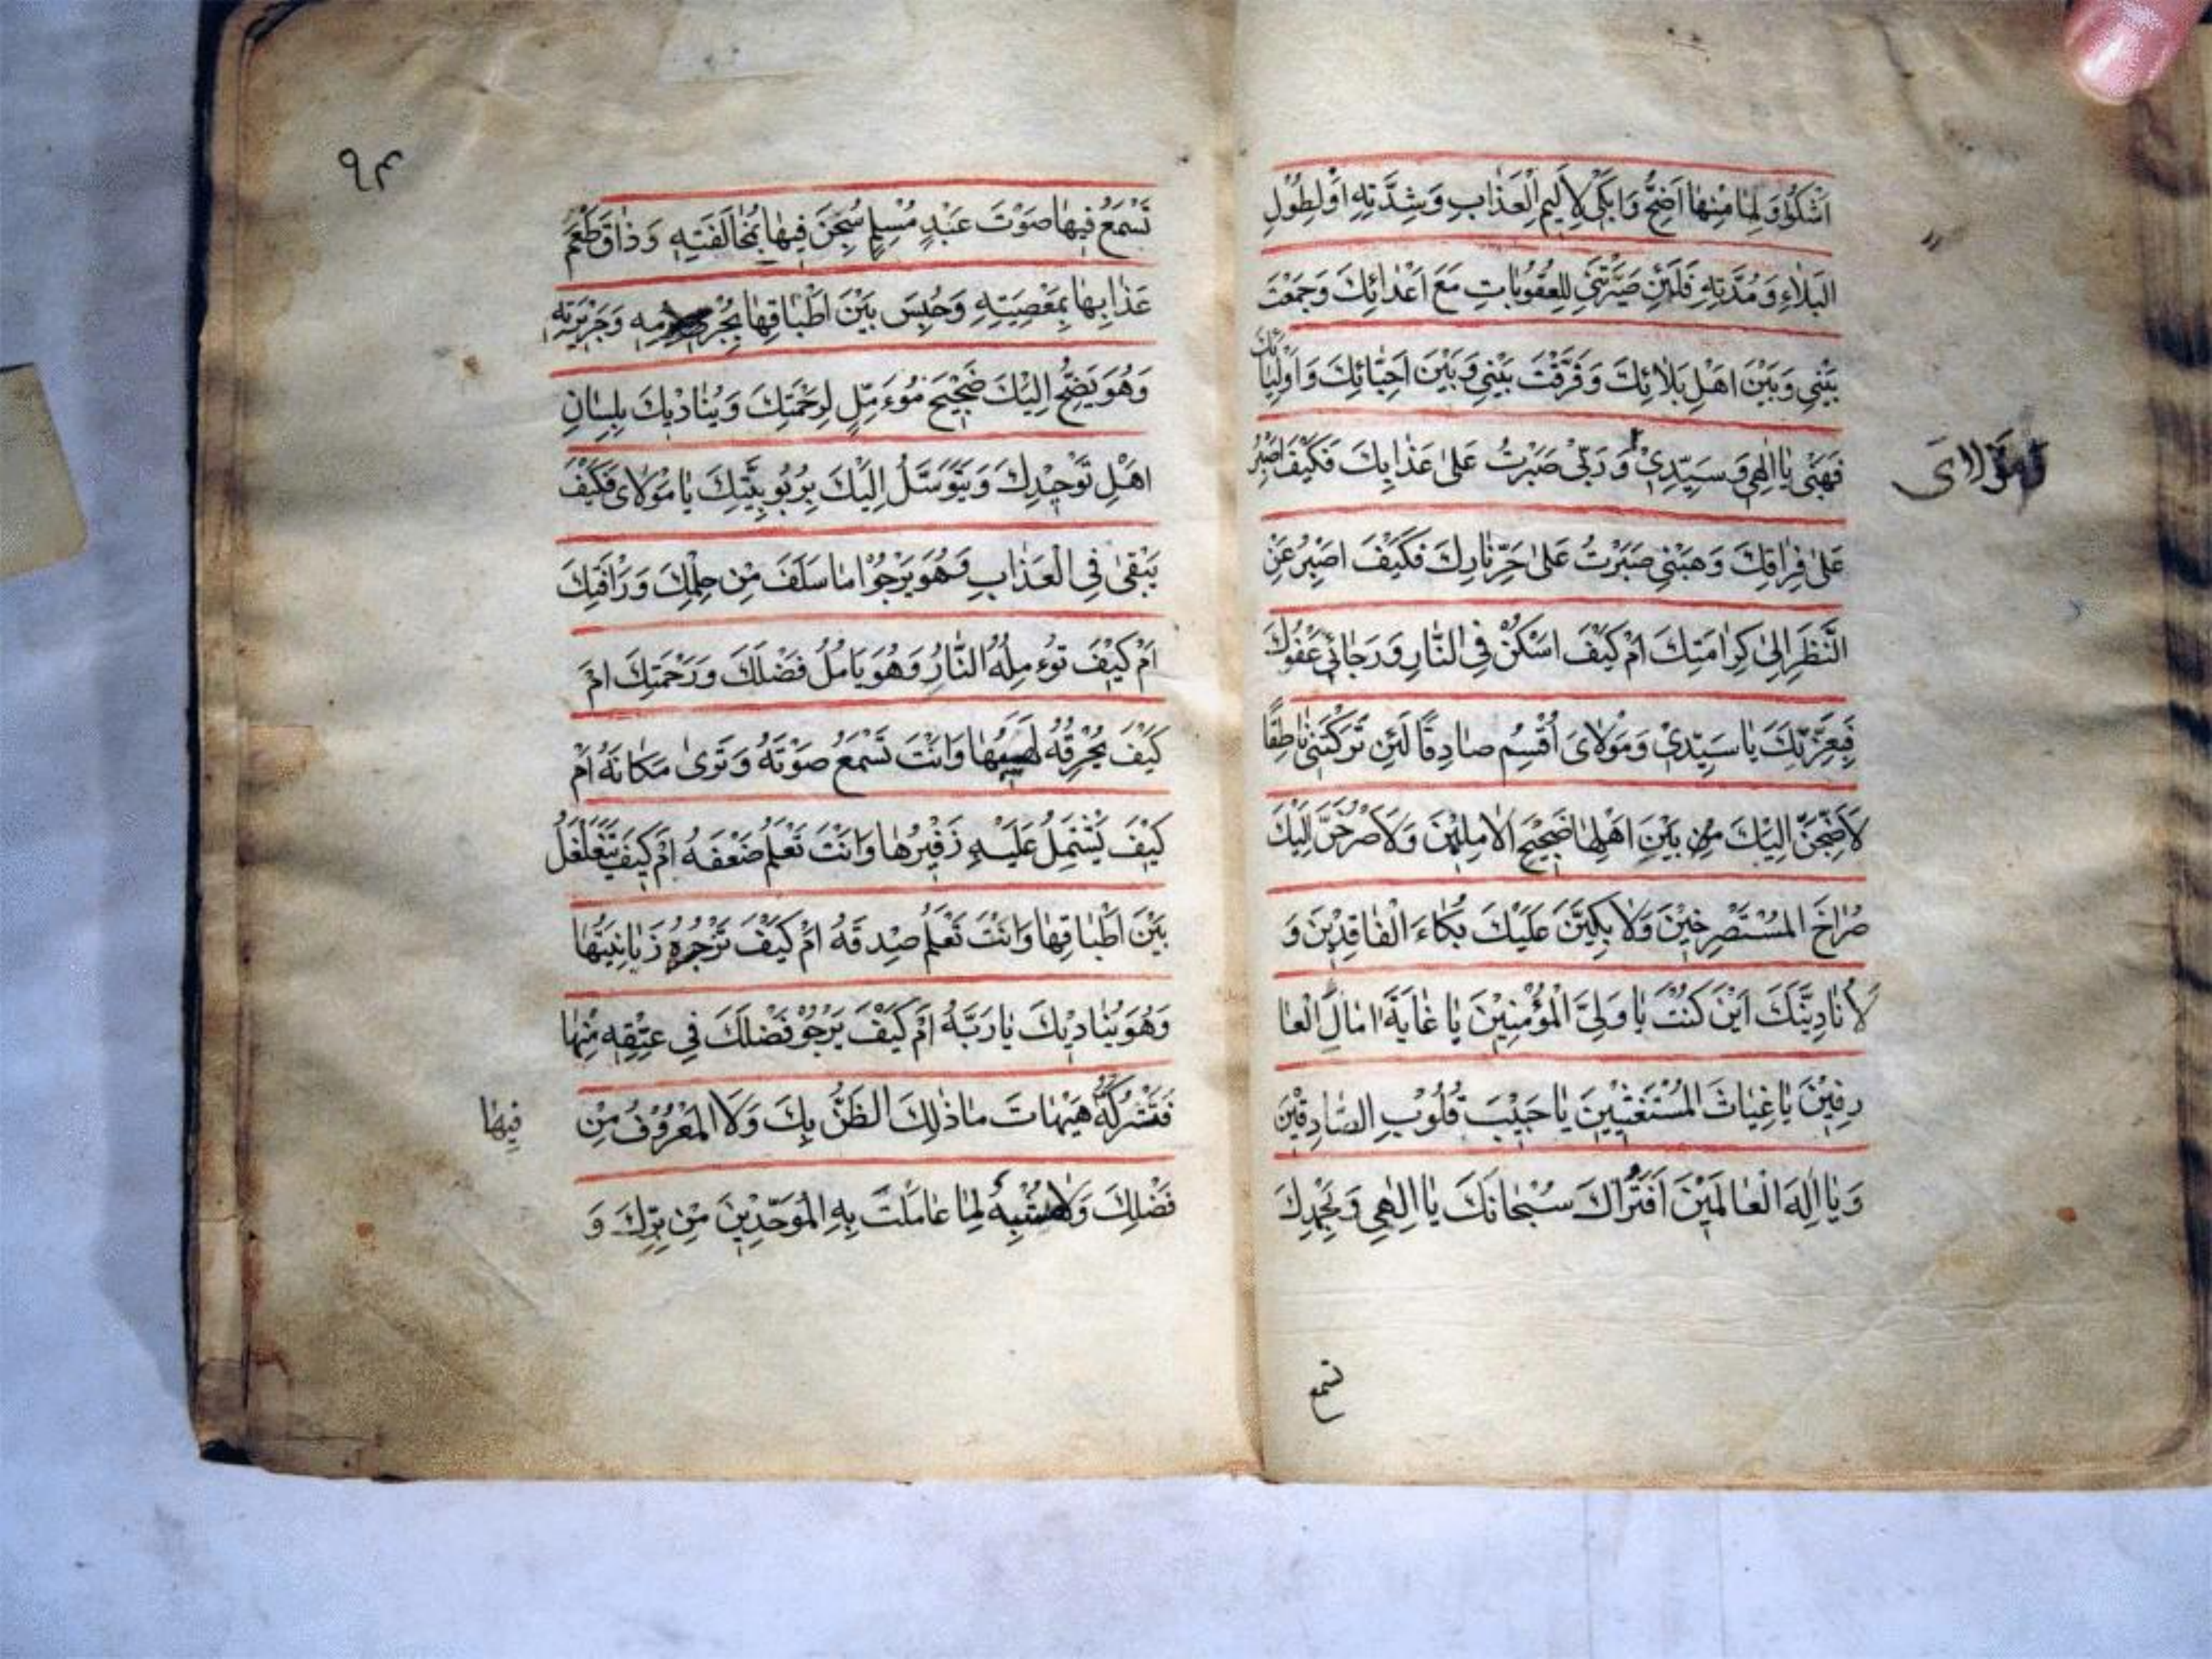 اَشْكُوْ وَلِمَا مِنْهَا اَضِجُّ وَاَبْكٖي لِاَلٖيمِ الْعَذَابِ وَشِدَّتِهٖ اَوْ لِطُوْلِ
الْبَلَاءِ وَمُدَّتِهٖ فَلَئِنْ صَيَّرْتَنٖي لِلْعُقُوْبَاتِ مَعَ اَعْدَائِكَ وَجَمَعْتَ
بَيْنٖي وَبَيْنَ اَهْلِ بَلَائِكَ وَفَرَّقْتَ بَيْنٖي وَبَيْنَ اَحِبَّائِكَ وَاَوْلِيَائِكَ
فَهَبْنٖي يَا اِلٰهٖي وَسَيِّدٖيْ وَرَبّٖيْ صَبَرْتُ عَلٰى عَذَابِكَ فَكَيْفَ اَصْبِرُ
وَمَوْلَايَ
عَلٰى فِرَاقِكَ وَهَبْنٖي صَبَرْتُ عَلٰى حَرِّ نَارِكَ فَكَيْفَ اَصْبِرُ عَنِ
النَّظَرِ اِلٰى كَرَامَتِكَ اَمْ كَيْفَ اَسْكُنُ فِي النَّارِ وَرَجَائٖي عَفْوُكَ
فَبِعِزَّتِكَ يَا سَيِّدٖيْ وَمَوْلَايَ اُقْسِمُ صَادِقًا لَئِنْ تَرَكْتَنٖي نَاطِقًا
لَاَضِجَّنَّ اِلَيْكَ مِنْ بَيْنِ اَهْلِهَا ضَجٖيْجَ الْاٰمِلٖيْنَ وَلَاَصْرُخَنَّ اِلَيْكَ
صُرَاخَ الْمُسْتَصْرِخٖيْنَ وَلَاَبْكِيَنَّ عَلَيْكَ بُكَاءَ الْفَاقِدٖيْنَ وَ
لَاُنَادِيَنَّكَ اَيْنَ كُنْتَ يَا وَلِيَّ الْمُؤْمِنٖيْنَ يَا غَايَةَ اٰمَالِ الْعَا
رِفٖيْنَ يَا غِيَاثَ الْمُسْتَغٖثٖيْنَ يَا حَبٖيْبَ قُلُوْبِ الصَّادِقٖيْنَ
وَيَا اِلٰهَ الْعَالَمٖيْنَ اَفَتُرَاكَ سُبْحَانَكَ يَا اِلٰهٖي وَبِحَمْدِكَ
تسمع
٩٣
تَسْمَعُ فٖيهَا صَوْتَ عَبْدٍ مُسْلِمٍ سُجِنَ فٖيهَا بِمُخَالَفَتِهٖ وَذَاقَ طَعْمَ
عَذَابِهَا بِمَعْصِيَتِهٖ وَحُبِسَ بَيْنَ اَطْبَاقِهَا بِجُرْمِهٖ وَجَرٖيْرَتِهٖ
وَهُوَ يَضِجُّ اِلَيْكَ ضَجٖيْجَ مُوءَمِّلٍ لِرَحْمَتِكَ وَيُنَادٖيْكَ بِلِسَانِ
اَهْلِ تَوْحٖيْدِكَ وَيَتَوَسَّلُ اِلَيْكَ بِرُبُوْبِيَّتِكَ يَا مَوْلَايَ فَكَيْفَ
يَبْقٰى فِي الْعَذَابِ وَهُوَ يَرْجُوْا مَا سَلَفَ مِنْ حِلْمِكَ وَرَاْفَتِكَ
اَمْ كَيْفَ تُوءْمِلُهُ النَّارُ وَهُوَ يَامُلُ فَضْلَكَ وَرَحْمَتَكَ اَمْ
كَيْفَ يُحْرِقُهُ لَهٖيْبُهَا وَاَنْتَ تَسْمَعُ صَوْتَهُ وَتَرٰى مَكَانَهُ اَمْ
كَيْفَ يَشْتَمِلُ عَلَيْهِ زَفٖيْرُهَا وَاَنْتَ تَعْلَمُ ضَعْفَهُ اَمْ كَيْفَ يَتَغَلْغَلُ
بَيْنَ اَطْبَاقِهَا وَاَنْتَ تَعْلَمُ صِدْقَهُ اَمْ كَيْفَ تَزْجُرُهٗ زَبَانِيَتُهَا
وَهُوَ يُنَادٖيْكَ يَا رَبَّهُ اَمْ كَيْفَ يَرْجُوْ فَضْلَكَ فٖي عِتْقِهٖ مِنْهَا
فَتَتْرُكُهُ هَيْهَاتَ مَا ذٰلِكَ الظَّنُّ بِكَ وَلَا الْمَعْرُوْفُ مِنْ
فٖيهَا
فَضْلِكَ وَلَا مُشْبِهٌ لِمَا عَامَلْتَ بِهِ الْمُوَحِّدٖيْنَ مِنْ بِرِّكَ وَ